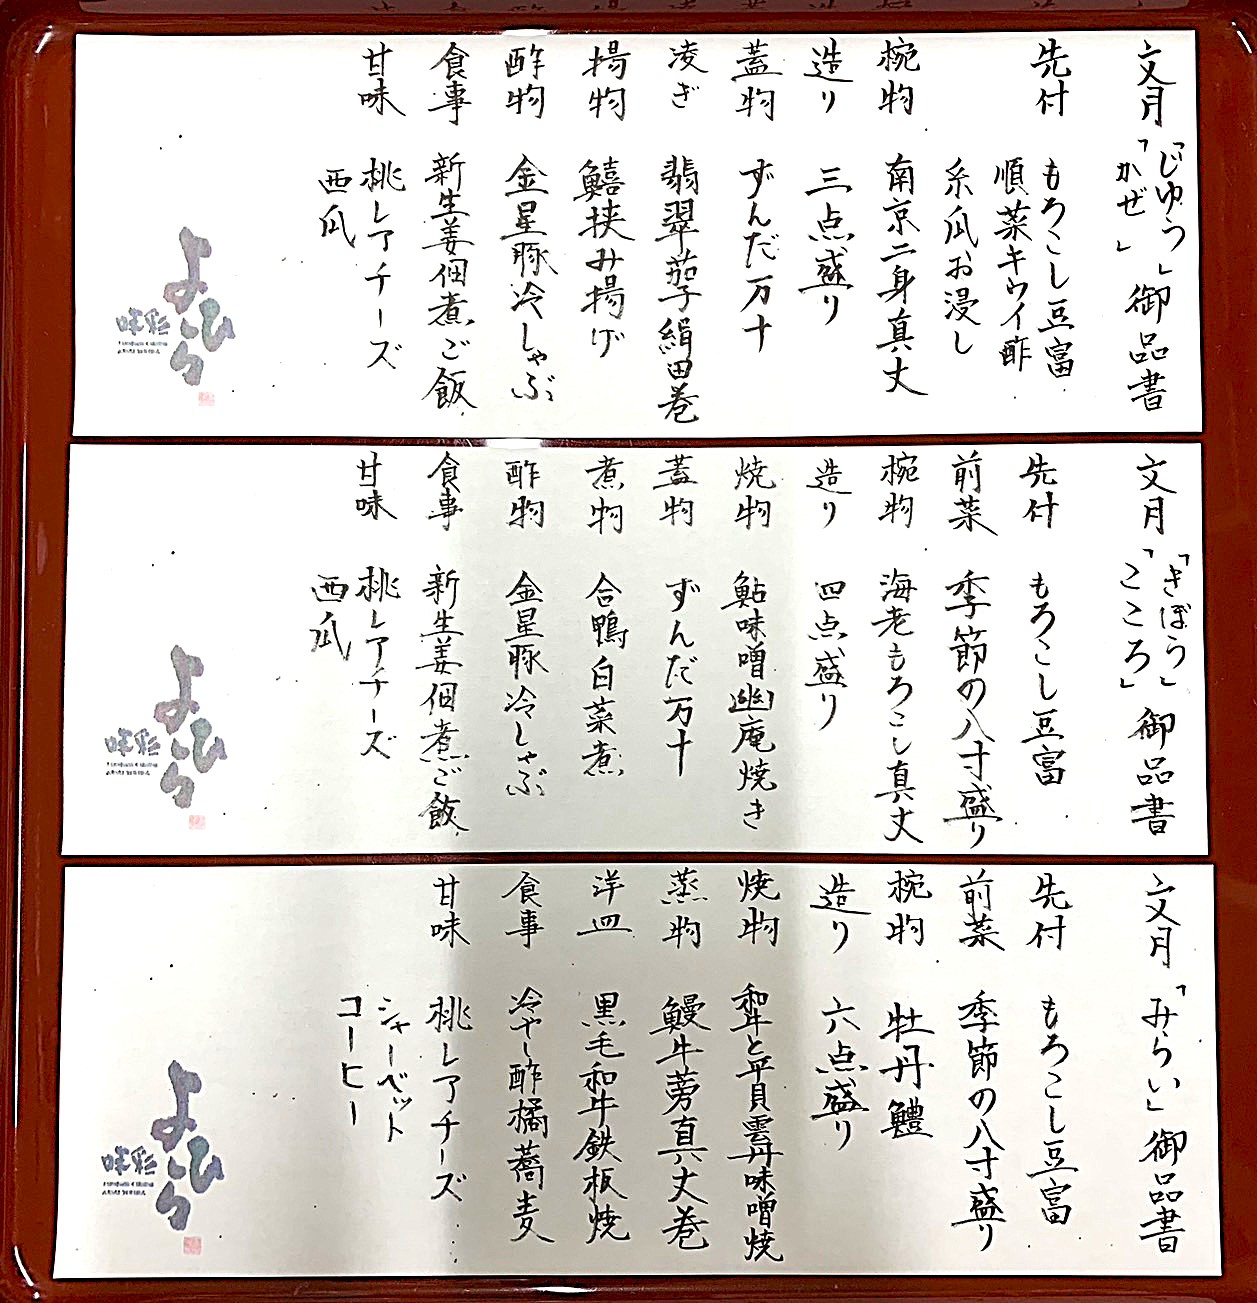 文月「じゆう」「かぜ」御品書
先付 もろこし豆富
順菜キウイ酢
糸瓜お浸し
椀物 南京二身真丈
造り 三点盛り
蓋物 ずんだ万十
凌ぎ 翡翠茄子絹田巻
揚物 鱚挟み揚げ
酢物 金星豚冷しゃぶ
食事 新生姜佃煮ご飯
甘味 桃レアチーズ
西瓜
よひら
味彩和
文月「きぼう」「こころ」御品書
先付 もろこし豆富
前菜 季節の八寸盛り
椀物 海老もろこし真丈
造り 四点盛り
焼物 鮎味噌幽庵焼き
蓋物 ずんだ万十
煮物 合鴨白菜煮
酢物 金星豚冷しゃぶ
食事 新生姜佃煮ご飯
甘味 桃レアチーズ
西瓜
よひら
文月「みらい」御品書
先付 もろこし豆富
前菜 季節の八寸盛り
椀物 牡丹鱧
造り 六点盛り
焼物 和牛と平貝雲丹味噌焼
蒸物 鰻牛蒡真丈巻
洋皿 黒毛和牛鉄板焼
食事 冷やし酢橘蕎麦
甘味 桃レアチーズ
シャーベット
コーヒー
よひら